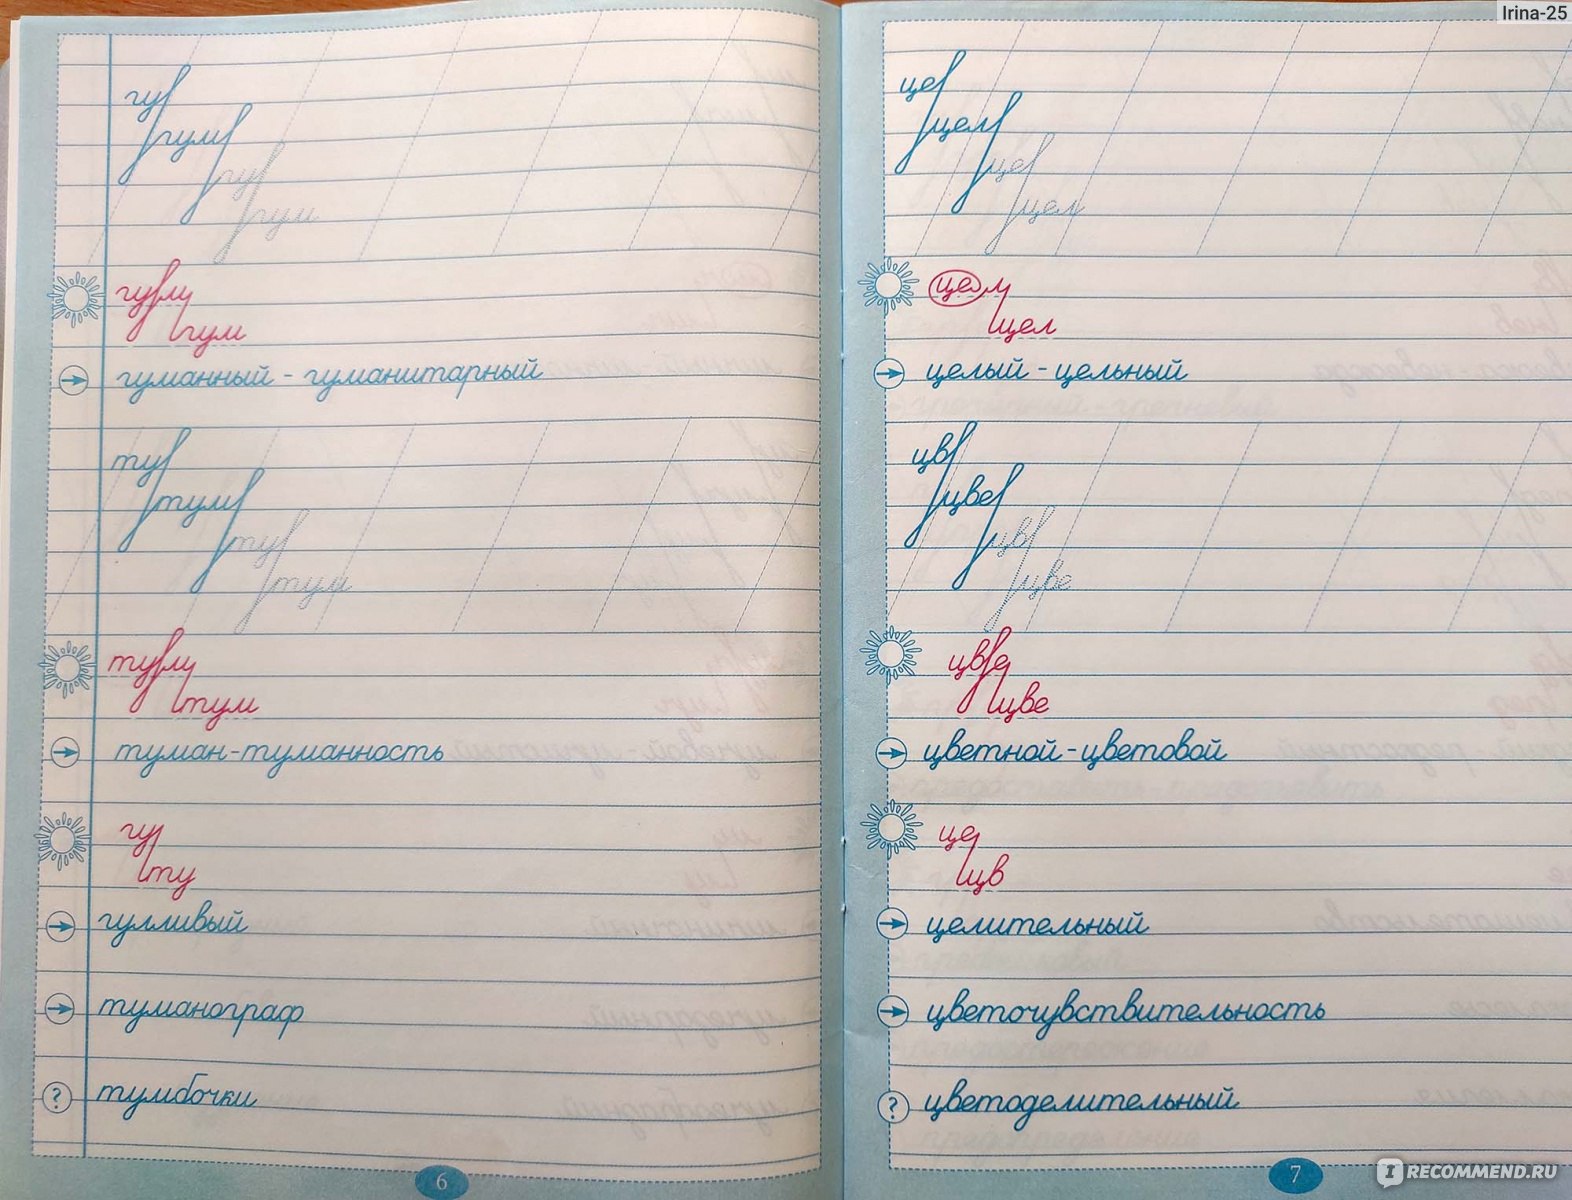 Irina-25
гу
гум
гу
гум
гум
гум
гуманный - гуманитарный
ту
тум
ту
тум
тум
туман-туманность
гу
ту
гулливый
туманограф
? тумбочки
6
це
цел
це
цел
цел
цел
целый - цельный
цв
цве
цв
цве
цве
цве
цветной - цветовой
це
цв
целительный
цветочувствительность
? цветоделительный
7
IRECOMMEND.RU